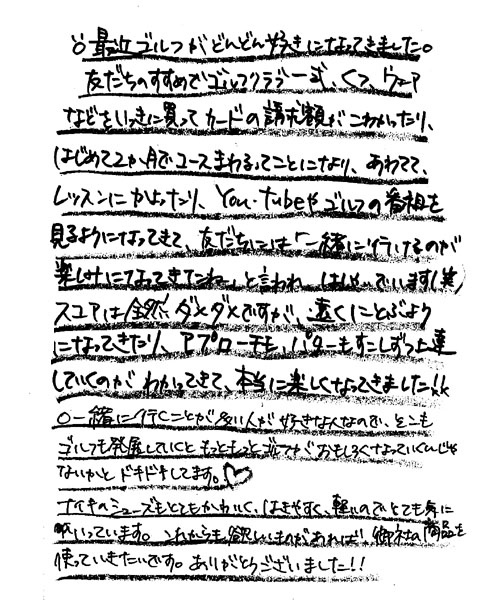 最近ゴルフがどんどん好きになってきました。
友だちのすすめでゴルフクラブ一式、くつ、ウェア
などをいっきに買ってカードの請求額がこわかったり、
はじめて2か月でコースまわるってことになり、あわてて、
レッスンにかよったり、You-tubeやゴルフの番組を
見るようになってきて、友だちには「一緒に行けるのが
楽しみになってきたね」と言われ はしゃいでいます(笑)
スコアは全然ダメダメですが、遠くにとぶよう
になってきたり、アプローチも、パターもすこしずつ上達
していくのがわかってきて、本当に楽しくなってきました!!
○一緒に行くことが多い人が好きな人なので、そこも
ゴルフも発展していくと もっともっとゴルフがおもしろくなっていくんじゃ
ないかと ドキドキしてます。♡
ナイキのシューズもとてもかわいく、はきやすく、軽いのでとても気に
入っています。これからも欲しいものがあれば、御社の商品を
使っていきたいです。ありがとうございました!!